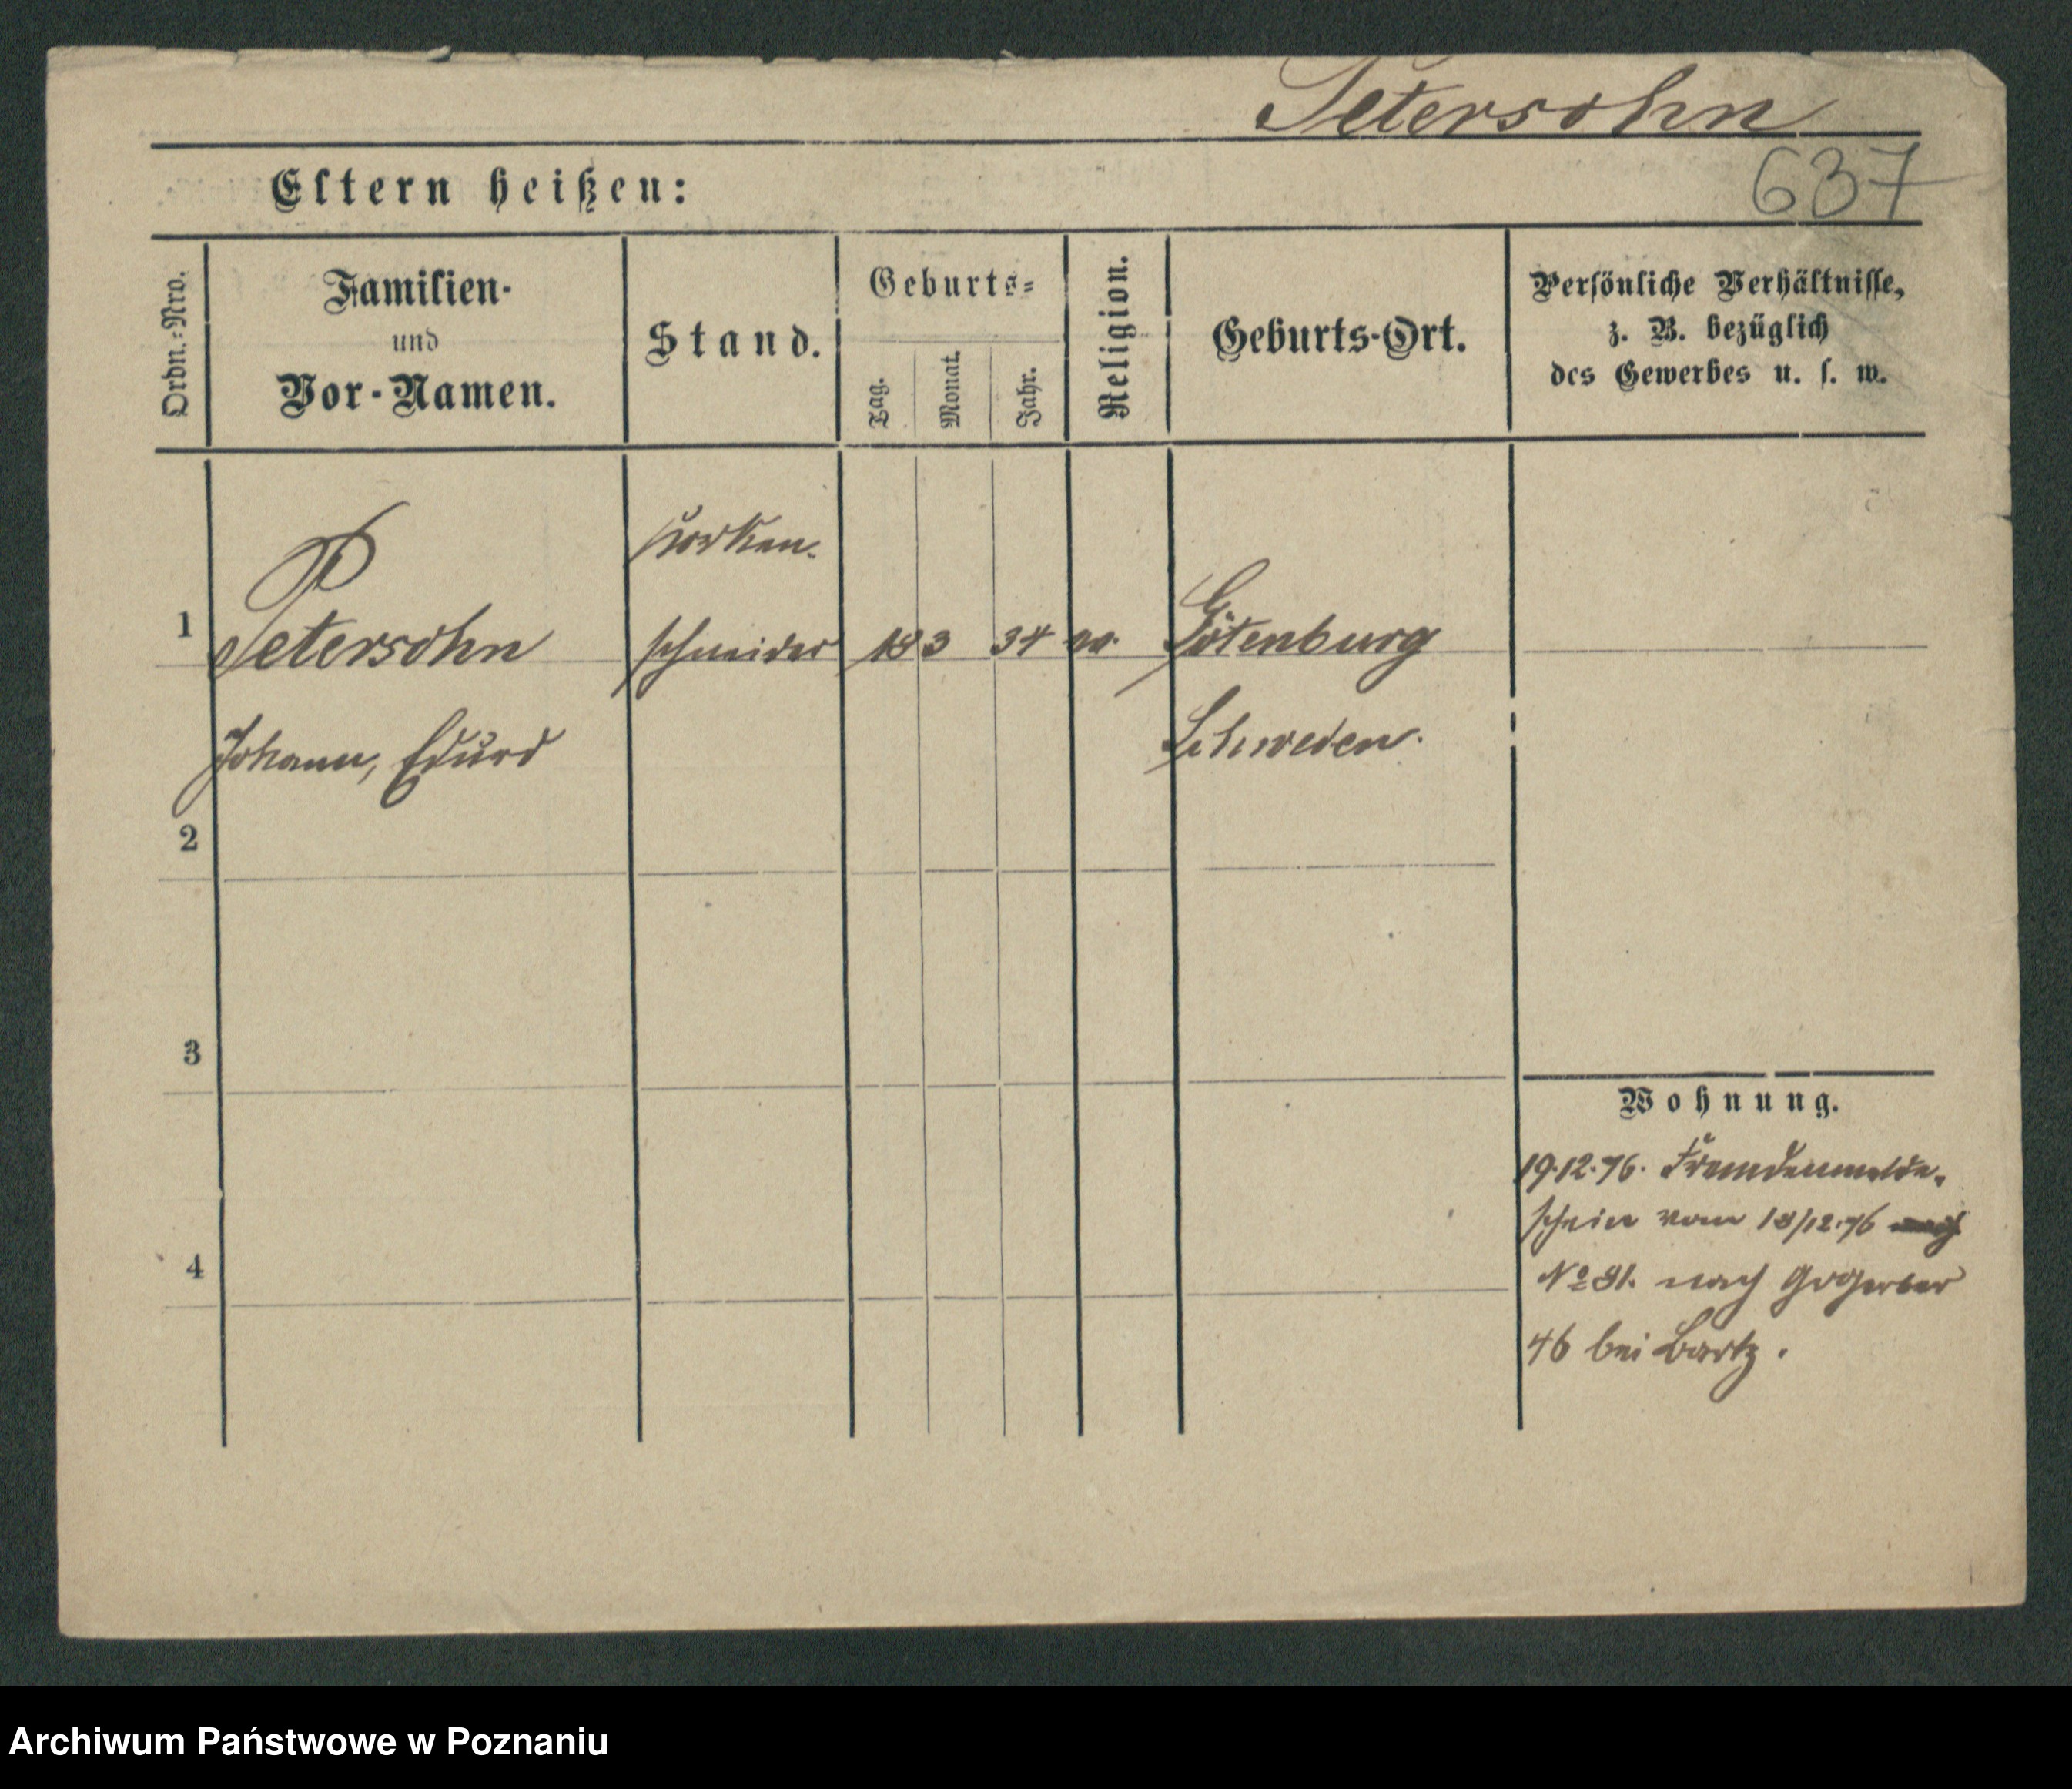 Petersohn
637
Eltern heißen:
Ordn.-Nro.
Familien-
und
Vor-Namen.
Stand.
Geburts-
Tag.
Monat.
Jahr.
Religion.
Geburts-Ort.
Persönliche Verhältnisse,
z. B. bezüglich
des Gewerbes u. s. w.
Korken-
1 Petersohn schneider 18 3 34 ev. Götenburg
Johann, Eduard Schweden.
2
3
4
Wohnung.
19.12.76. Fremdenmelde-
schein vom 18/12.76
№ 81. nach GrGerber
46 bei Bartz.
Archiwum Państwowe w Poznaniu